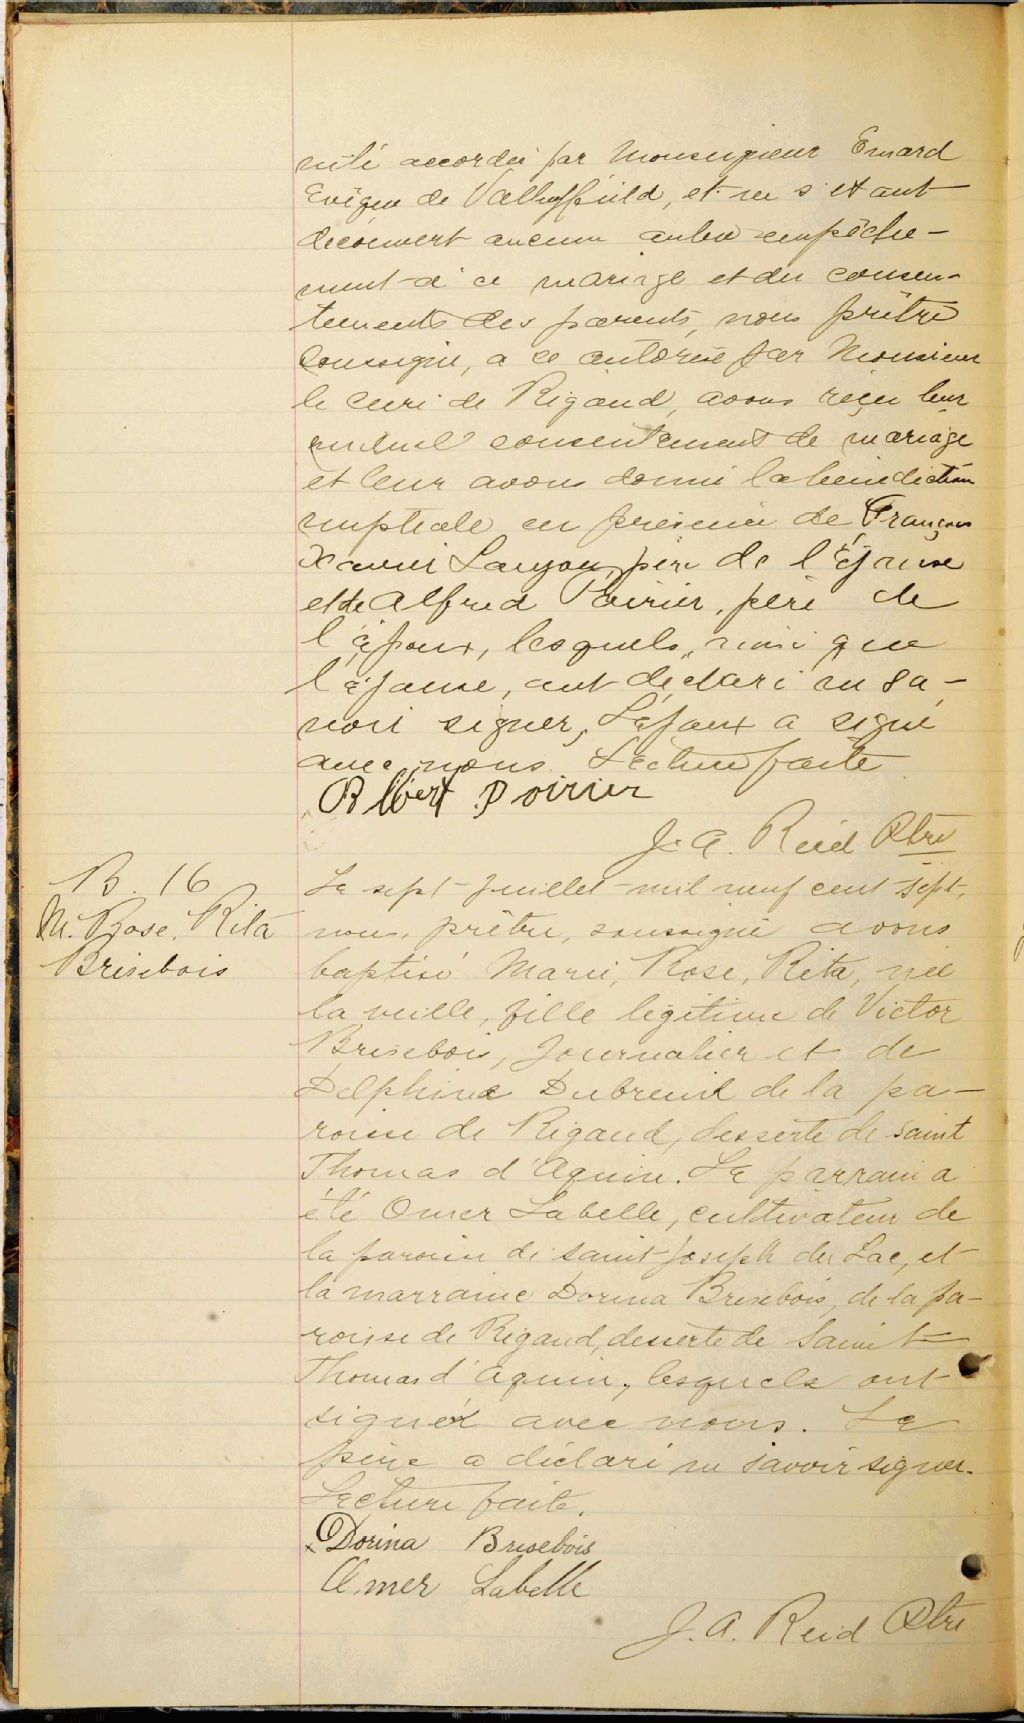 nité accordée par Monseigneur Emard
Evêque de Valleyfield, et ne s'étant
découvert aucun autre empêche-
ment à ce mariage et du consen-
tements des parents, nous prêtre
soussigné, a ce autorisé par Monsieur
le curé de Rigaud, avons reçu leur
mutuel consentement de mariage
et leur avons donné la bénédiction
nuptiale en présence de François
Xavier Lauzon, père de l'épouse
et de Alfred Poirier, père de
l'époux, lesquels, ainsi que
l'épouse, ont déclaré ne sa-
voir signer, L'époux a signé
avec nous. Lecture faite
Albert Poirier
J. A. Reid Ptre
B. 16
M. Rose, Rita
Brisebois
Le sept Juillet mil neuf cent sept,
nous, prêtre, soussigné avons
baptisé Marie, Rose, Rita, née
la veille, fille légitime de Victor
Brisebois, Journalier et de
Delphine Dubreuil de la pa-
roisse de Rigaud, desserte de Saint
Thomas d'Aquin. Le parrain a
été Omer Labelle, cultivateur de
la paroisse de Saint Joseph du Lac, et
la marraine Dorina Brisebois, de la pa-
roisse de Rigaud, desserte de Saint
Thomas d'Aquin, lesquels ont
signé avec nous. Le
père a déclaré ne savoir signer.
Lecture faite.
Dorina Brisebois
Omer Labelle
J. A. Reid Ptre